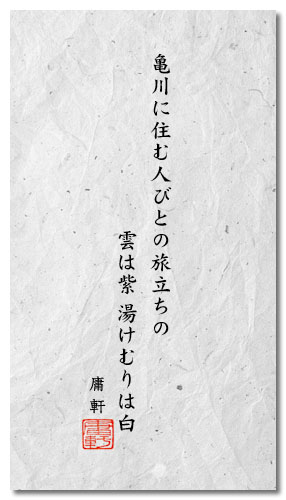 亀川に住む人びとの旅立ちの
雲は紫 湯けむりは白
庸軒